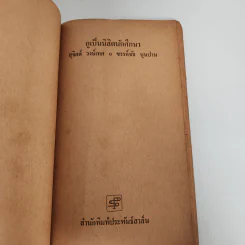 กูเป็นนิสิตนักศึกษา
สุจิตต์ วงษ์เทศ ๏ ขรรค์ชัย บุนปาน
สำนักพิมพ์ประพันธ์สาส์น